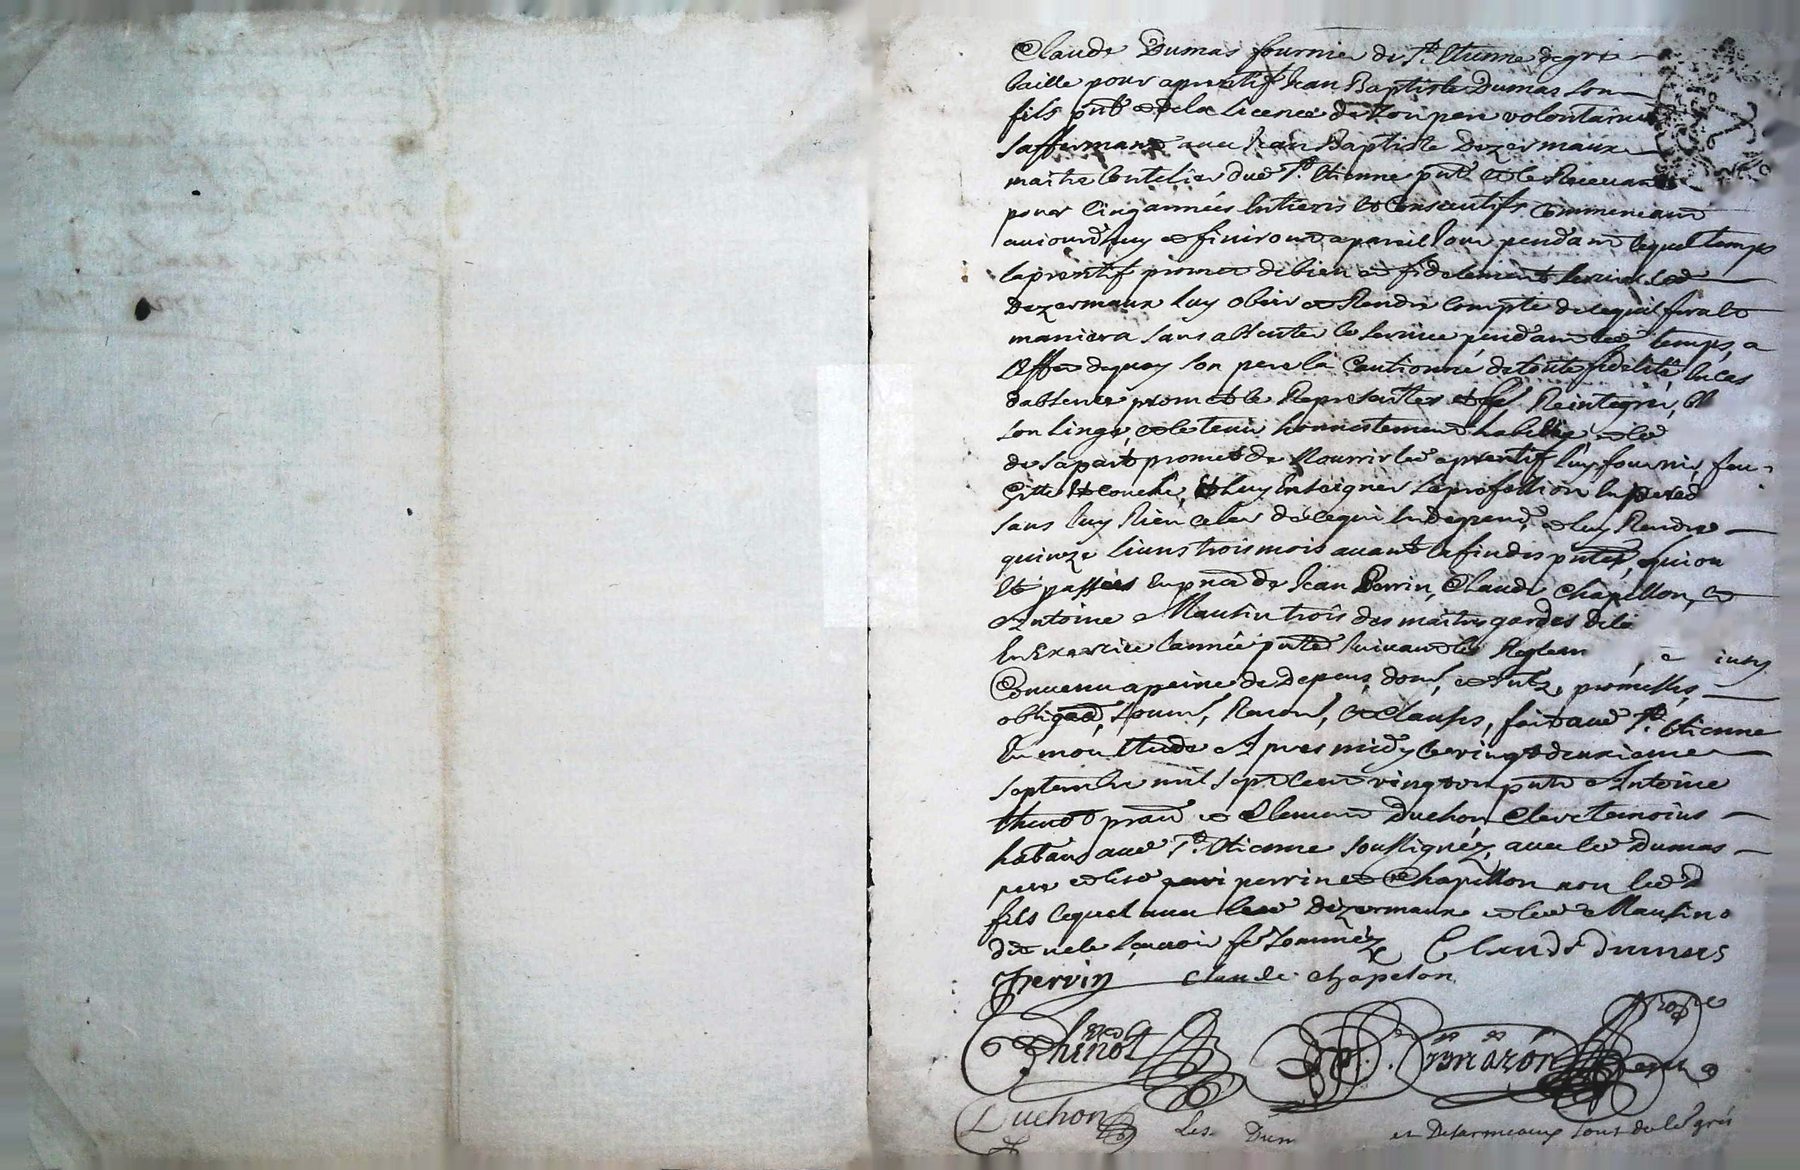 Claude Dumas fournier de St. Etienne degré
baille pour aprentif Jean Baptiste Dumas son
fils pnt et de la licence de son pere volontaire
saffermant avec Jean Baptiste Dezermaux
maitre Coutelier dud St. Etienne pnt et le Recevant
pour Cinq années Entieres et Consecutifs Commencant
aujourdhuy et finiront a pareil Jour pendant lequel temps
laprentif promet de bien et fidelement servir led
Dezermaux luy obeir et Rendre Compte de cequil fera et
maniera sans absenter le service pendant led temps, a
Effet dequoy son pere la Cautionné de toute fidelité, En cas
dabsence promet le Representer et Reintegrer, Et
son linge, et le tenir honnestement habillé, et led
de sapart promet de Nourrir led aprentif luy fournir feu
Gitte Et couche, Et luy Enseigner sa profession
sans luy Rien celer de cequi En depend, et luy Rendre
quinze Jours trois mois avant la fin des pntes, qui on
Eté passées En pnce de Jean Perrin, Claude Chapellon, et
Antoine Maussin trois des maitres gardes dela
En Exercice lannée pnte suivant les Reglem
Convenu a peine de Depens, dom, et Intz, promesses,
obligaon, soum, Renon, et Clauses, fait aud St. Etienne
En mon Etude Apres midy le vingt deuxieme
septembre mil sept Cent vingt un pnts Antoine
thinot pratn et Clement Duchon Clerc temoins
habitans aud St. Etienne soussignéz, avec led Dumas
pere et lesd perrin et Chapellon non led D
fils lequel avec led Dezermaux et led Maussin o
dit ne le sçavoir de ce Sommez Claude dumas
J pervin Claude Chapelon
Thinot
Duchon Les Dum et Desarmeaux sont de St